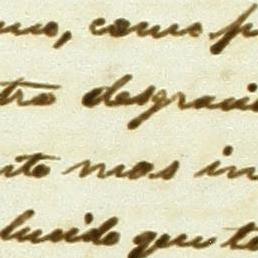 mo, como p
tro desgraci
nte mas in
lucido que te